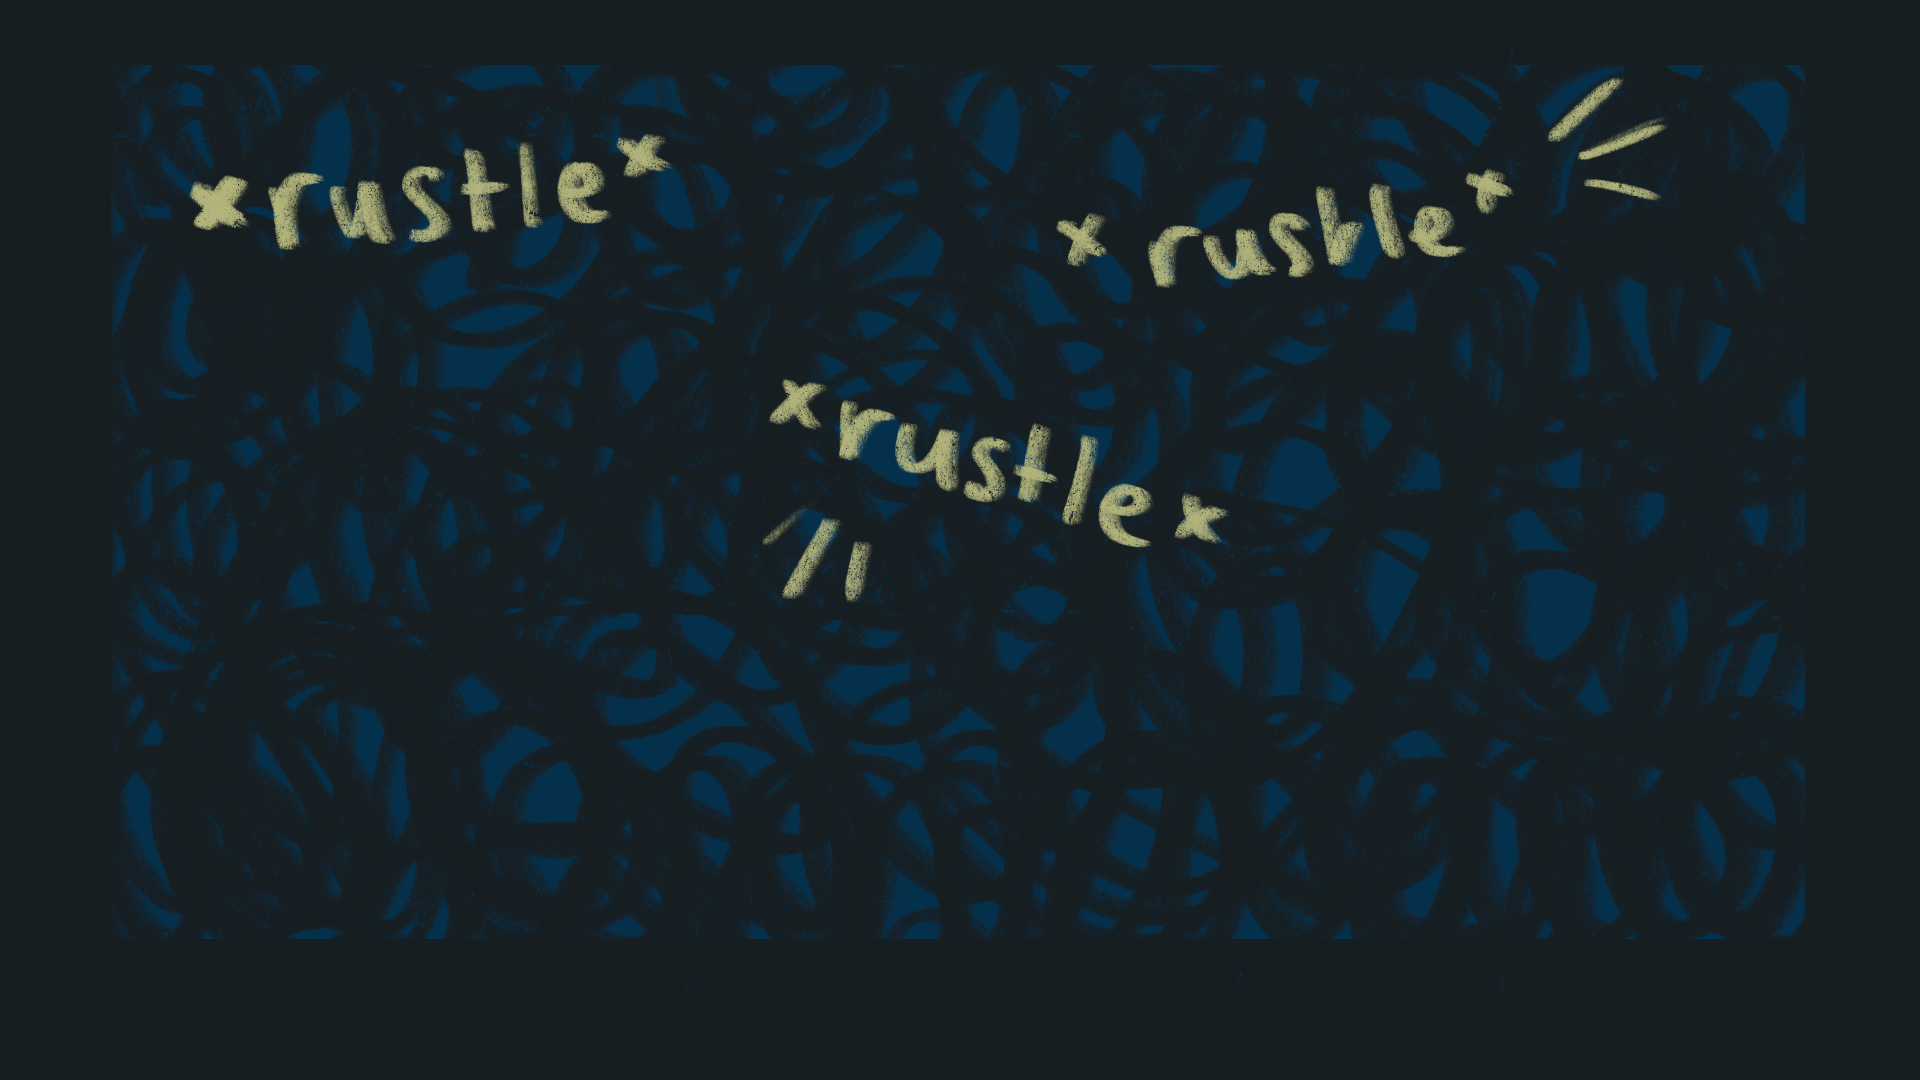 *rustle*
* rustle*
*rustle*